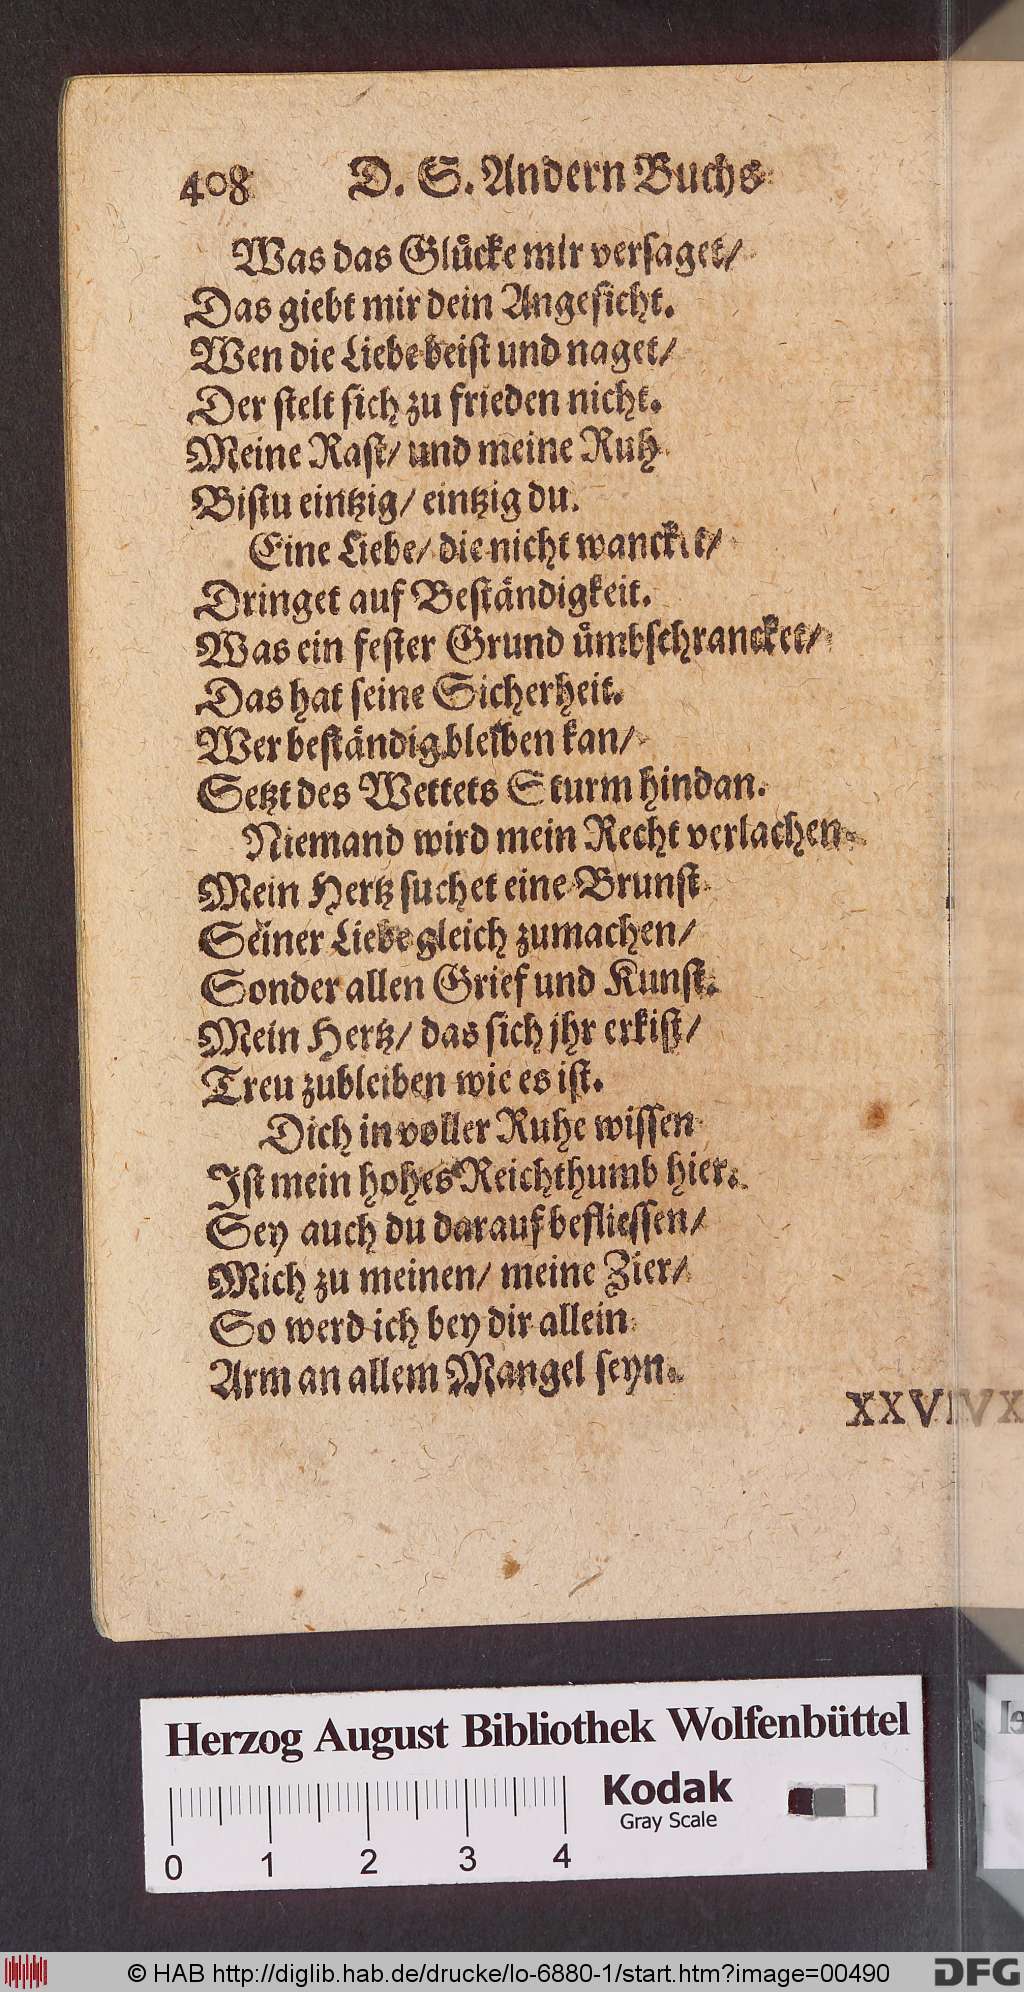 408 D. S. Andern Buchs
Was das Glůcke mir versaget/
Das giebt mir dein Angesicht.
Wen die Liebe beist und naget/
Der stelt sich zu frieden nicht.
Meine Rast/ und meine Ruh
Bistu eintzig/ eintzig du.
Eine Liebe/ die nicht wancket/
Dringet auf Beständigkeit.
Was ein fester Grund ůmbschrancket/
Das hat seine Sicherheit.
Wer beständig bleiben kan/
Setzt des Wettets Sturm hindan.
Niemand wird mein Recht verlachen
Mein Hertz suchet eine Brunst
Seiner Liebe gleich zumachen/
Sonder allen Grief und Kunst.
Mein Hertz/ das sich jhr erkist/
Treu zubleiben wie es ist.
Dich in voller Ruhe wissen
Ist mein hohes Reichthumb hier.
Sey auch du darauf befliessen/
Mich zu meinen/ meine Zier/
So werd ich bey dir allein
Arm an allem Mangel seyn.
Herzog August Bibliothek Wolfenbüttel
Kodak
Gray Scale
0 1 2 3 4
© HAB http://diglib.hab.de/drucke/lo-6880-1/start.htm?image=00490
DFG